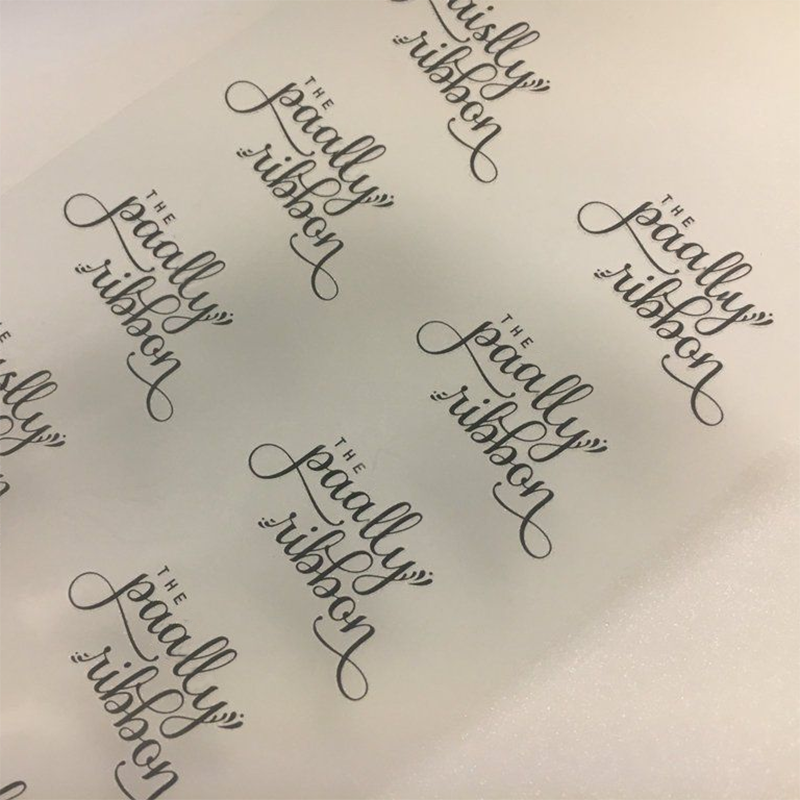 aislly
ribbon
THE
paally
ribbon
THE
paally
ribbon
THE
paally
ribbon
THE
paally
ribbon
slly
THE
paally
ribbon
THE
paally
ribbon